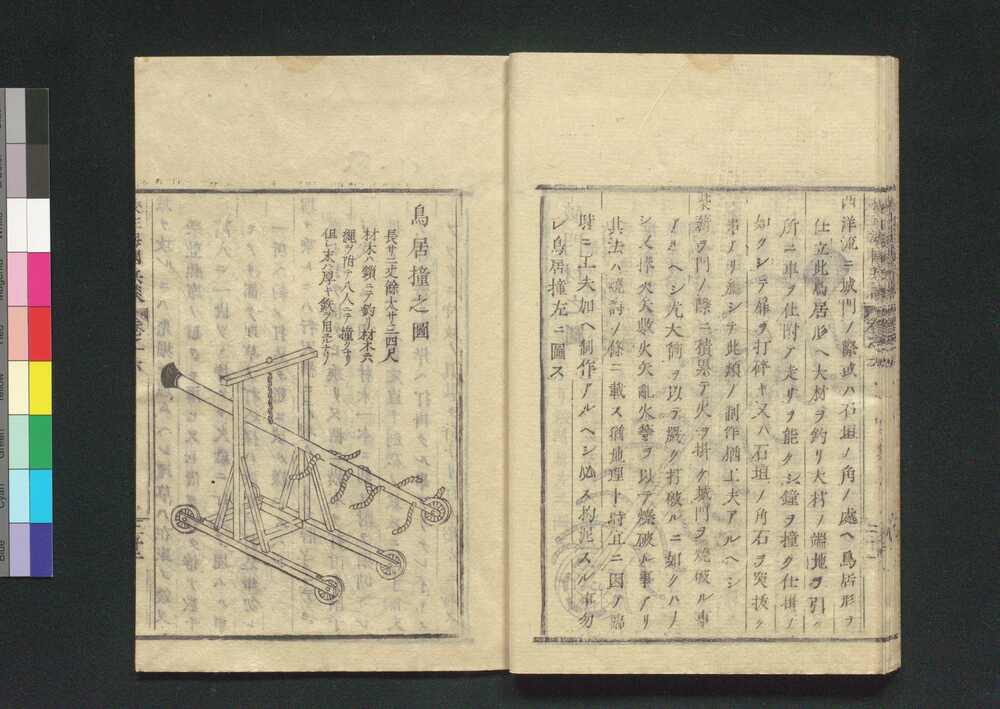 西洋流ニ城門ノ際或ハ石垣ノ角ノ處ヘ鳥居形ヲ
仕立此鳥居形ヘ大材ヲ釣リ大材ノ端地ヲ引
所ニ車ヲ仕附テ走リヲ能クシ鐘ヲ撞ク仕掛ノ
如クシテ扉ヲ打碎キ又ハ石垣ノ角石ヲ突拔ク
事アリ總シテ此類ノ制作猶工夫アルヘシ
柴薪ヲ門ノ際ニ積累テ火ヲ掛ケ城門ヲ燒破ル事
アルヘシ尤大筒ヲ以テ嚴ク打破ルニ如クハナ
シ又棒火矢散火矢亂火等ヲ以テ燒破ル事アリ
其法ハ燒討ノ條ニ載ス猶地理ト時宜ニ因テ臨
時ニ工夫加ヘ制作アルヘシ必ス拘泥スル事勿
レ鳥居撞左ニ圖ス
鳥居撞之圖
長サ三丈餘大サ三四尺
材木ハ鎖ニテ釣リ材木六
繩ヲ附テ八人ニテ撞クナリ
但シ末ハ厚キ鉄ヲ用ルナリ